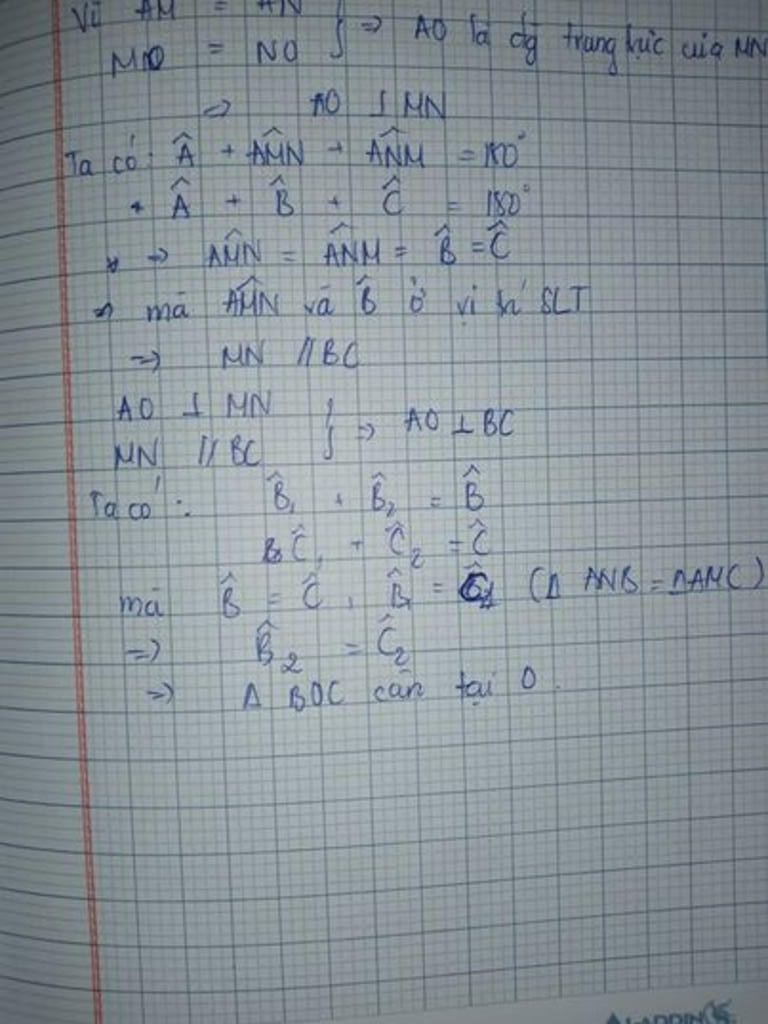 Vì AM = AN
MO = NO } => AO là đg trung trực của MN
=> AO ⊥ MN
Ta có: Â + AM̂N + AN̂M = 180°
+ Â + B̂ + Ĉ = 180°
=> AM̂N = AN̂M = B̂ = Ĉ
=> mà AM̂N và B̂ ở vị trí SLT
=> MN // BC
AO ⊥ MN
MN // BC } => AO ⊥ BC
Ta có: B̂₁ + B̂₂ = B̂
Ĉ₁ + Ĉ₂ = Ĉ
mà B̂ = Ĉ, B̂₁ = Ĉ₁ (Δ ANB = ΔAMC)
=> B̂₂ = Ĉ₂
=> Δ BOC cân tại O.